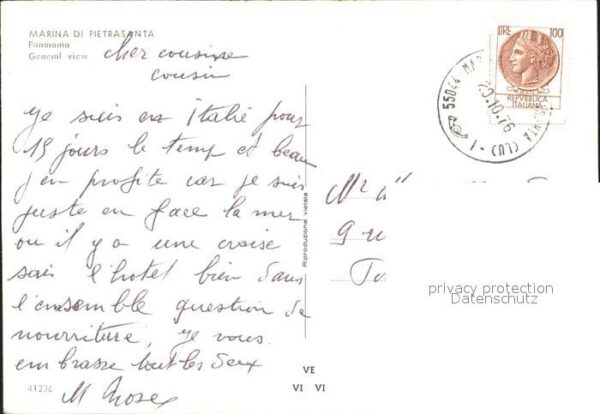 MARINA DI PIETRASANTA
Panorama
General view
cher cousine
cousin
je suis en Italie pour
15 jours le temp et beau
j'en profite car je suis
juste en face la mer
ou il y a une
l'hotel bien dans
l'ensemble question de
nourriture, je vous
embrasse tout les deux
M
41236
Riproduzione vietata
VE
VI VI
LIRE 100
REPVBBLICA
ITALIANA
55044 MAR
TA (LU)
10.76
privacy protection
Datenschutz